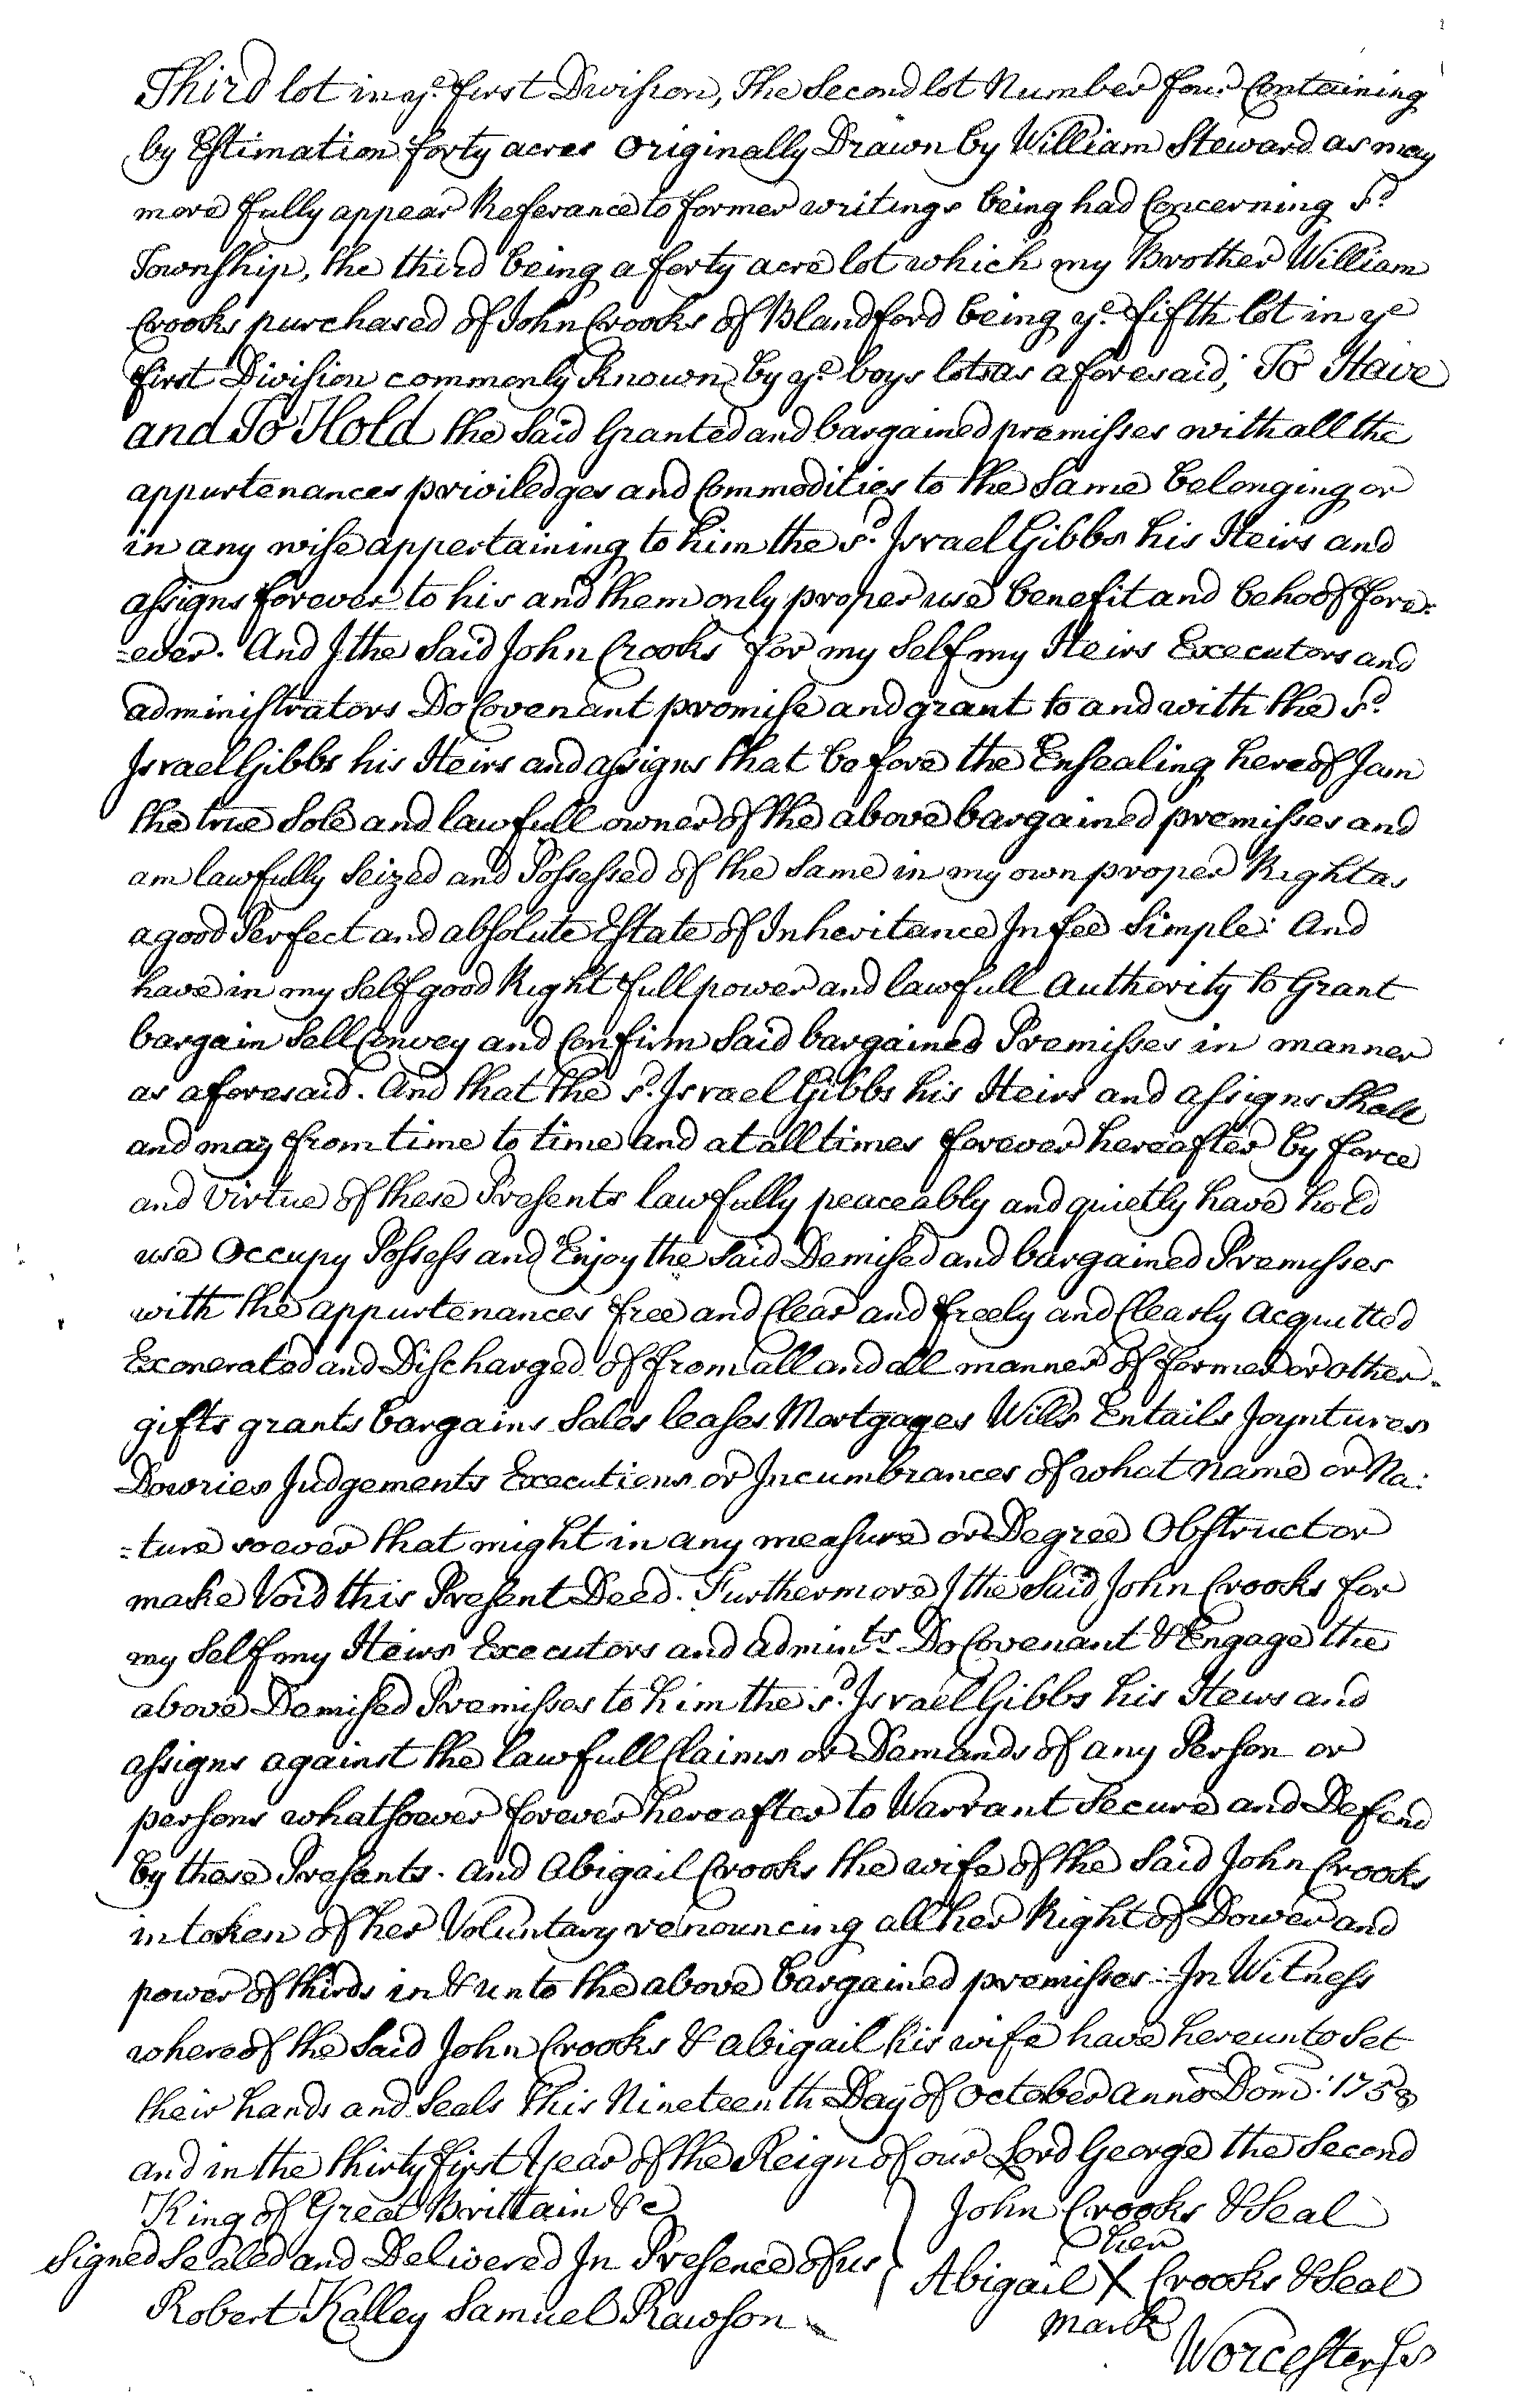 Third lot in ye. first Division, The Second lot Number four Containing
by Estimation forty acres Originally Drawn by William Steward as may
more fully appear Referance to former writings being had Concerning sd.
Township, the third being a forty acre lot which my Brother William
Crooks purchased of John Crooks of Blandford being ye. fifth lot in ye
first Division commonly Known by ye. boys lots as aforesaid; To Have
and To Hold the Said Granted and bargained premisses with all the
appurtenances priviledges and Commodities to the Same belonging or
in any wise appertaining to him the sd. Israel Gibbs his Heirs and
assigns forever to his and them only proper use benefit and behoof fore:
=ever. And I the Said John Crooks for my Self my Heirs Executors and
administrators Do Covenant promise and grant to and with the sd.
Israel Gibbs his Heirs and assigns that before the Ensealing hereof I am
the true Sole and lawfull owner of the above bargained premisses and
am lawfully Seized and Possessed of the Same in my own proper Right as
a good Perfect and absolute Estate of Inheritance In fee Simple: And
have in my Self good Right full power and lawfull Authority to Grant
bargain Sell Convey and Confirm Said bargained Premisses in manner
as aforesaid. And that the sd. Israel Gibbs his Heirs and assigns Shall
and may from time to time and at all times forever hereafter by force
and Virtue of these Presents lawfully peaceably and quietly have hold
use Occupy Possess and Enjoy the Said Demised and bargained Premisses
with the appurtenances free and Clear and freely and Clearly Acquitted
Exonerated and Discharged of from all and all manner of former or other
gifts grants bargains Sales leases Mortgages Wills Entails Joyntures
Dowries Judgements Executions or Incumbrances of what name or Na:
=ture soever that might in any measure or Degree Obstruct or
make Void this Present Deed. Furthermore I the Said John Crooks for
my Self my Heirs Executors and admints. Do Covenant & Engage the
above Demised Premisses to him the sd. Israel Gibbs his Heirs and
assigns against the lawfull Claims or Demands of any Person or
persons whatsoever forever hereafter to Warrant Secure and Defend
by these Presents. And Abigail Crooks the wife of the Said John Crooks
in token of her Voluntary renouncing all her Right of Dower and
power of thirds in & unto the above bargained premisses: In Witness
whereof the Said John Crooks & Abigail his wife have hereunto Set
their hands and Seals this Nineteenth Day of October Anno Dom: 1758
and in the thirty first Year of the Reign of our Lord George the Second
King of Great Brittain &c
John Crooks & Seal
Signed Sealed and Delivered In Presence of us
her
Abigail X Crooks & Seal
mark
Robert Kalley Samuel Rawson
Worcester ss